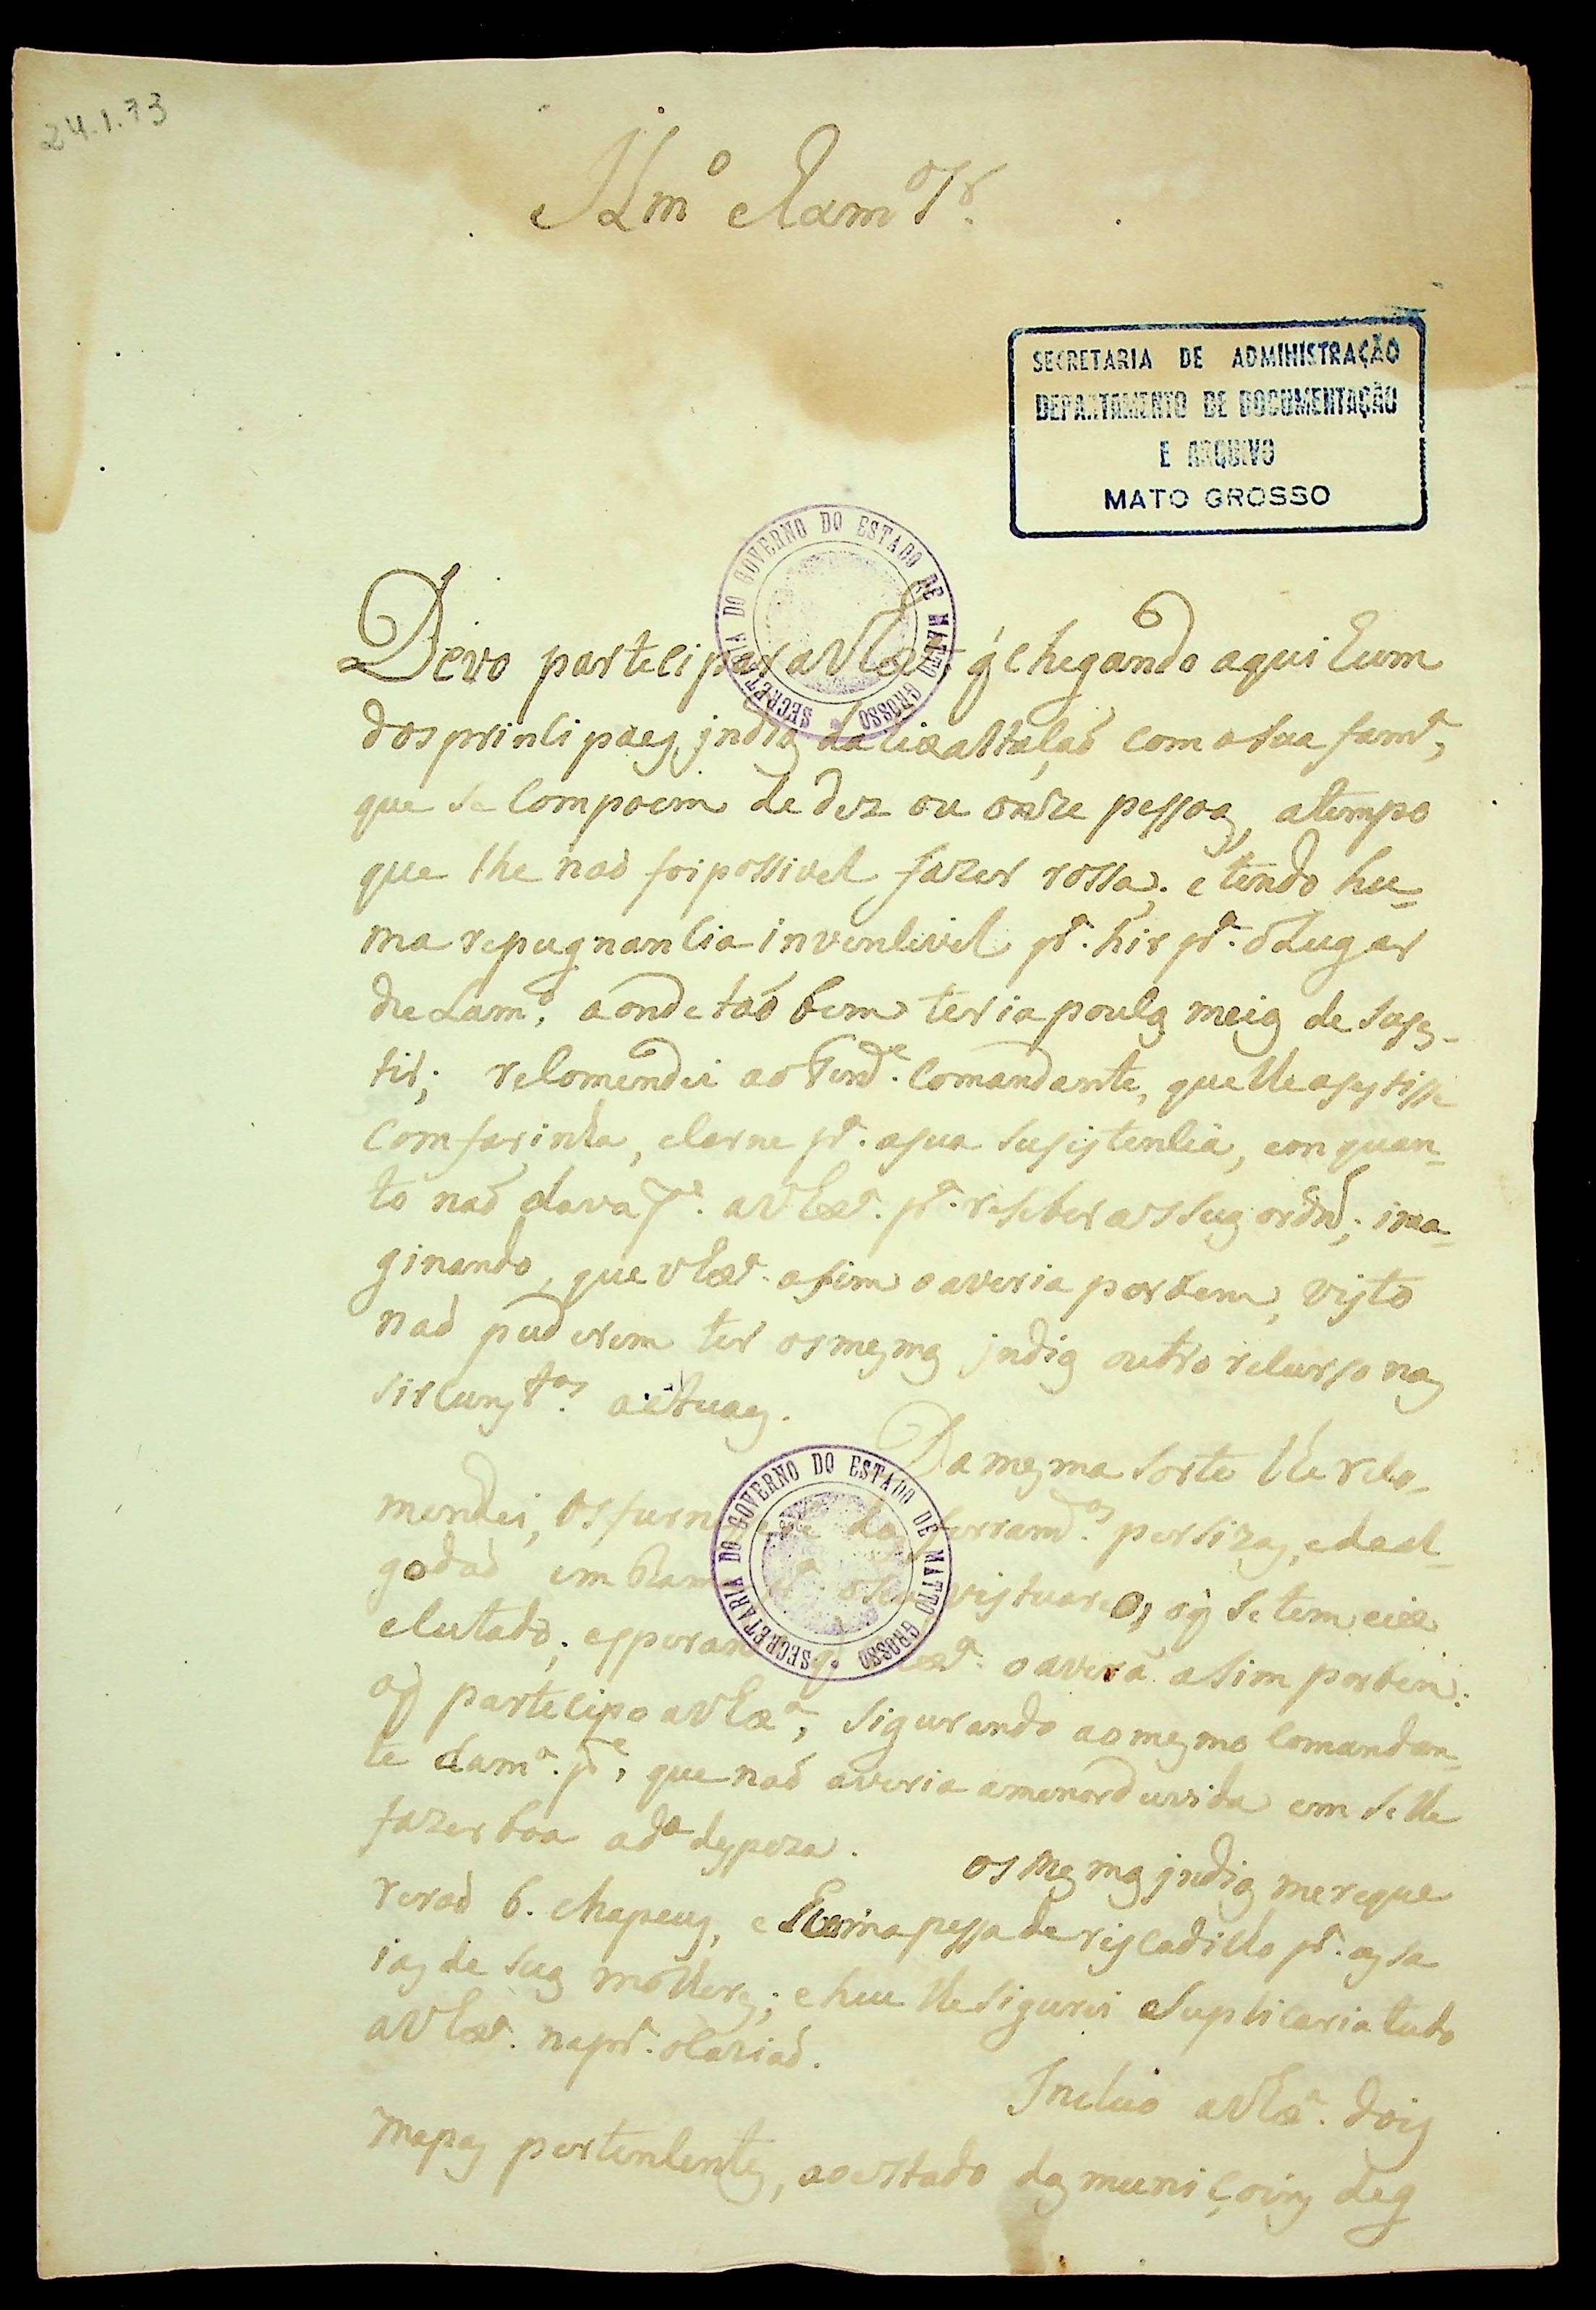 24.1.73
Illmº eExmº Sr.
SECRETARIA DE ADMINISTRAÇÃO
DEPARTAMENTO DE DOCUMENTAÇÃO
E ARQUIVO
MATO GROSSO
SECRETARIA DO GOVERNO DO ESTADO DE MATTO GROSSO
Devo partecipar a VExª. q̃ chegando aqui hum
dos principaes indios da Cazalvasção com a sua famª,
que se compoem de dez ou onze pessoas, a tempo
que lhe naõ foi possivel fazer rossa; e tendo hu-
ma repugnancia invencivel pª. hir pª. o Lugar
de Lamº, aonde taõ bem teria poucos meios de susis-
tir; recomendei ao Tende. Comandante, que lhe asistisse
com farinha, e carne pª. a sua susistencia, em quan-
to naõ dava pe. a VExª. pª. reseber as suas ordns; ima-
ginando, que VExª. asim o averia por bem, visto
naõ puderem ter os mesmos indios outro recurso nas
sircunstas. actuaes.
Da mesma sorte lhe reco-
mendei, os fornecese das ferramdas. persizas, e de al-
godaõ em rama pª. o seu vistuario, o q̃ se tem eixe
cutado; esperando q̃ VExª. o averá asim por bem:
o q̃ partecipo a VExª, sigurando ao mesmo Comandan-
te da mª. pe, que naõ averia a menor duvida em se lhe
fazer boa a dª despeza.
os mesmos indios me reque
reraõ 6. chapeus, e huma pessa de riscadilho pª. as sa
ias de suas molheres; e heu lhe sigurei suplicaria tudo
a VExª. na prª. ocaziaõ.
Incluo a VExª. dois
mapas pertencentes, ao estado das muniçoins de g
SECRETARIA DO GOVERNO DO ESTADO DE MATTO GROSSO